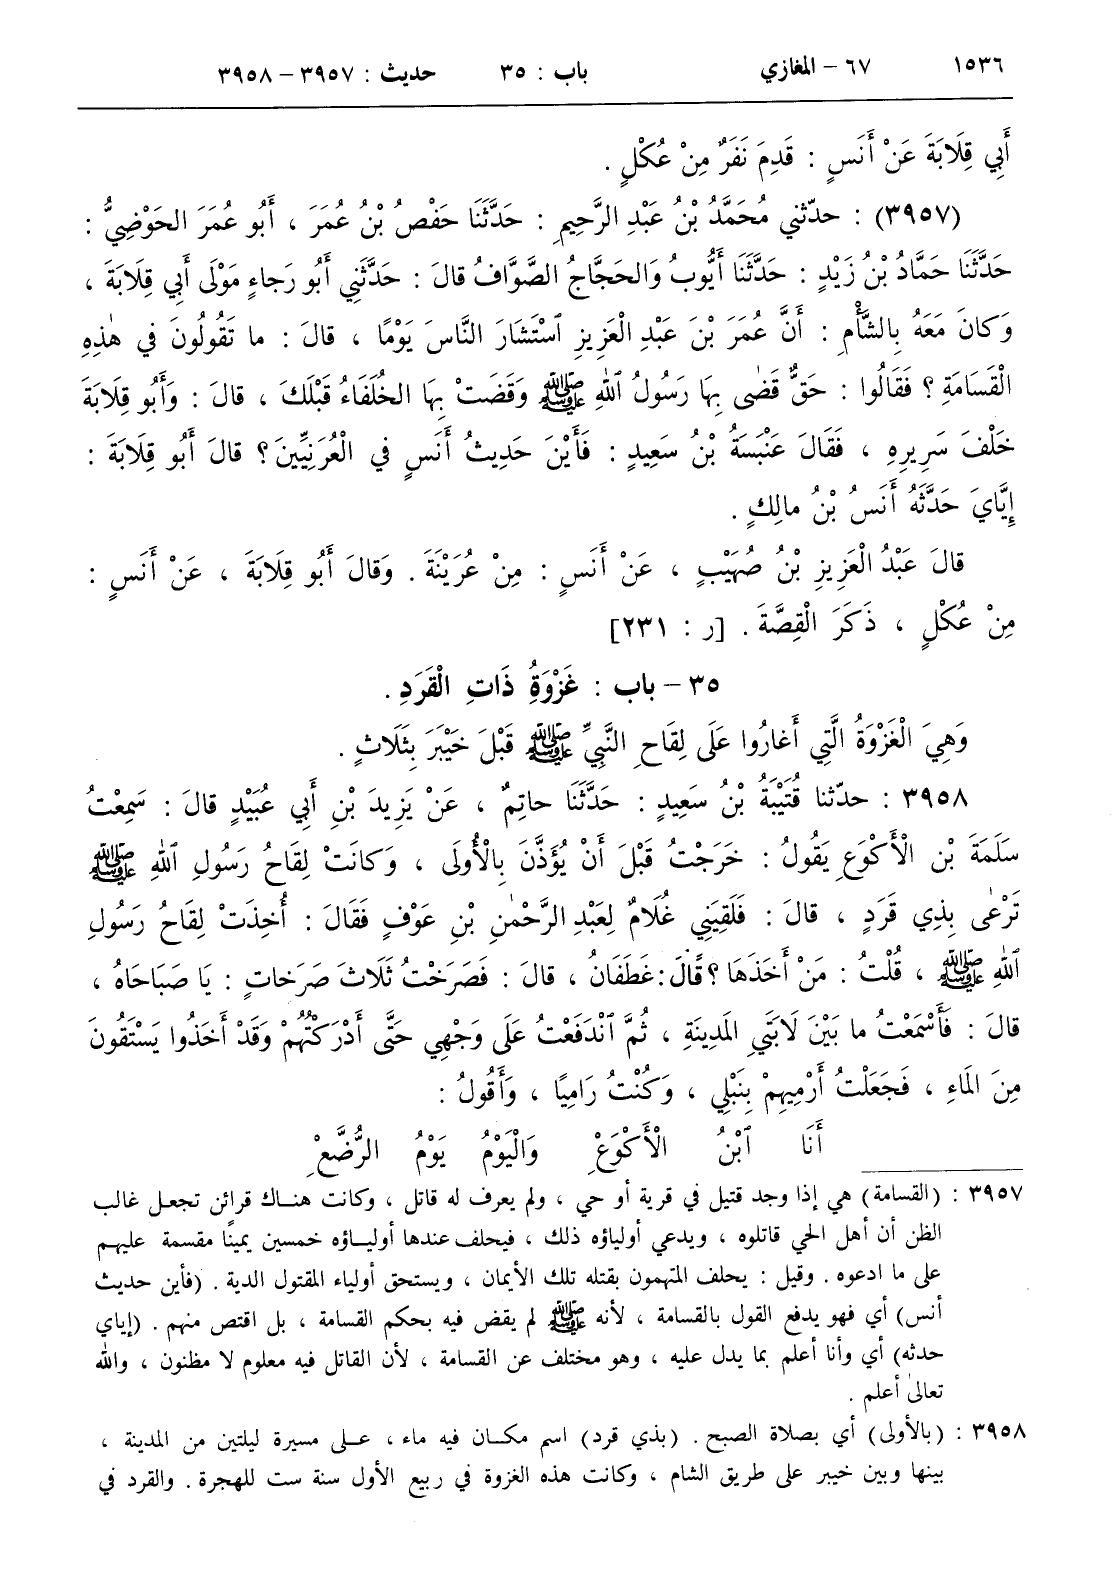 ١٥٣٦ ٦٧ – المغازي باب : ٣٥ حديث : ٣٩٥٧ – ٣٩٥٨
أَبِي قِلَابَةَ عَنْ أَنَسٍ : قَدِمَ نَفَرٌ مِنْ عُكْلٍ .
(٣٩٥٧) : حدّثني مُحَمَّدُ بْنُ عَبْدِ الرَّحِيمِ : حَدَّثَنَا حَفْصُ بْنُ عُمَرَ ، أَبُو عُمَرَ الحَوْضِيُّ :
حَدَّثَنَا حَمَّادُ بْنُ زَيْدٍ : حَدَّثَنَا أَيُّوبُ وَالحَجَّاجُ الصَّوَّافُ قالَ : حَدَّثَنِي أَبُو رَجاءٍ مَوْلَى أَبِي قِلَابَةَ ،
وَكانَ مَعَهُ بِالشَّأْمِ : أَنَّ عُمَرَ بْنَ عَبْدِ الْعَزِيزِ ٱسْتَشَارَ النَّاسَ يَوْمًا ، قالَ : ما تَقُولُونَ في هٰذِهِ
الْقَسَامَةِ ؟ فَقَالُوا : حَقٌّ قَضٰى بِهَا رَسُولُ ٱللهِ ﷺ وَقَضَتْ بِهَا الخُلَفَاءُ قَبْلَكَ ، قالَ : وَأَبُو قِلَابَةَ
خَلْفَ سَرِيرِهِ ، فَقَالَ عَنْبَسَةُ بْنُ سَعِيدٍ : فَأَيْنَ حَدِيثُ أَنَسٍ في الْعُرَنِيِّينَ ؟ قالَ أَبُو قِلَابَةَ :
إِيَّايَ حَدَّثَهُ أَنَسُ بْنُ مالِكٍ .
قالَ عَبْدُ الْعَزِيزِ بْنُ صُهَيْبٍ ، عَنْ أَنَسٍ : مِنْ عُرَيْنَةَ . وَقالَ أَبُو قِلَابَةَ ، عَنْ أَنَسٍ :
مِنْ عُكْلٍ ، ذَكَرَ الْقِصَّةَ . [ر : ٢٣١]
٣٥ – باب : غَزْوَةُ ذَاتِ الْقَرَدِ .
وَهِيَ الْغَزْوَةُ الَّتِي أَغارُوا عَلَى لِقَاحِ النَّبِيِّ ﷺ قَبْلَ خَيْبَرَ بِثَلَاثٍ .
٣٩٥٨ : حدّثنا قُتَيْبَةُ بْنُ سَعِيدٍ : حَدَّثَنَا حاتِمٌ ، عَنْ يَزِيدَ بْنِ أَبِي عُبَيْدٍ قالَ : سَمِعْتُ
سَلَمَةَ بْنَ الْأَكْوَعِ يَقُولُ : خَرَجْتُ قَبْلَ أَنْ يُؤَذَّنَ بِالْأُولَى ، وَكانَتْ لِقَاحُ رَسُولِ ٱللهِ ﷺ
تَرْعٰى بِذِي قَرَدٍ ، قالَ : فَلَقِيَنِي غُلَامٌ لِعَبْدِ الرَّحْمٰنِ بْنِ عَوْفٍ فَقَالَ : أُخِذَتْ لِقَاحُ رَسُولِ
ٱللهِ ﷺ ، قُلْتُ : مَنْ أَخَذَهَا ؟ قالَ : غَطَفَانُ ، قالَ : فَصَرَخْتُ ثَلَاثَ صَرَخاتٍ : يَا صَبَاحَاهُ ،
قالَ : فَأَسْمَعْتُ ما بَيْنَ لَابَتَيِ المَدِينَةِ ، ثُمَّ ٱنْدَفَعْتُ عَلَى وَجْهِي حَتَّى أَدْرَكْتُهُمْ وَقَدْ أَخَذُوا يَسْتَقُونَ
مِنَ المَاءِ ، فَجَعَلْتُ أَرْمِيهِمْ بِنَبْلِي ، وَكُنْتُ رَامِيًا ، وَأَقُولُ :
أَنَا ٱبْنُ الْأَكْوَعْ وَالْيَوْمُ يَوْمُ الرُّضَّعْ
٣٩٥٧ : (القسامة) هي إذا وجد قتيل في قرية أو حي ، ولم يعرف له قاتل ، وكانت هناك قرائن تجعل غالب
الظن أن أهل الحي قاتلوه ، ويدعي أولياؤه ذلك ، فيحلف عندها أولياؤه خمسين يمينًا مقسمة عليهم
على ما ادعوه . وقيل : يحلف المتهمون بقتله تلك الأيمان ، ويستحق أولياء المقتول الدية . (فأين حديث
أنس) أي فهو يدفع القول بالقسامة ، لأنه ﷺ لم يقض فيه بحكم القسامة ، بل اقتص منهم . (إياي
حدثه) أي وأنا أعلم بما يدل عليه ، وهو مختلف عن القسامة ، لأن القاتل فيه معلوم لا مظنون ، والله
تعالىٰ أعلم .
٣٩٥٨ : (بالأولى) أي بصلاة الصبح . (بذي قرد) اسم مكان فيه ماء ، على مسيرة ليلتين من المدينة ،
بينها وبين خيبر على طريق الشام ، وكانت هذه الغزوة في ربيع الأول سنة ست للهجرة . والقرد في